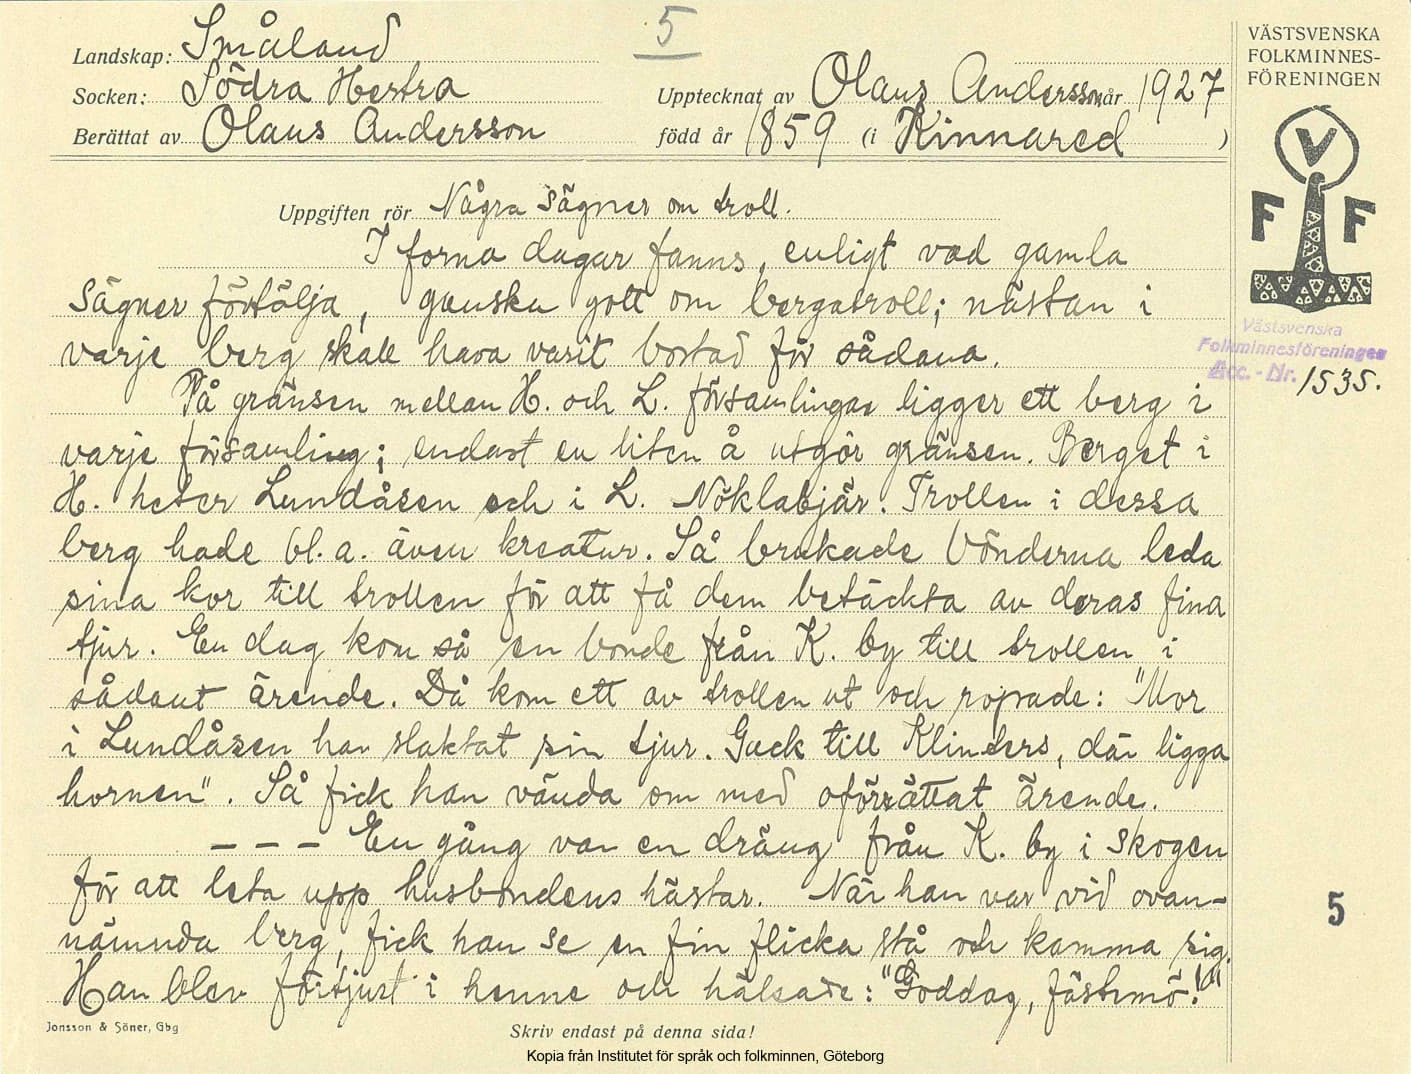 5
Landskap: Småland
Socken: Södra Hestra
Upptecknat av Olaus Andersson år 1927
Berättat av Olaus Andersson
född år 1859 (i Kinnared )
VÄSTSVENSKA
FOLKMINNES-
FÖRENINGEN
V
F F
Västsvenska
Folkminnesföreningen
Acc. - Nr. 1535.
Uppgiften rör Några sägner om troll.
I forna dagar fanns, enligt vad gamla
sägner förtälja, ganska gott om bergatroll; nästan i
varje berg skall hava varit bostad för sådana.
På gränsen mellan H. och L. församlingar ligger ett berg i
varje församling; endast en liten å utgör gränsen. Berget i
H. heter Lundåsen och i L. Nöklabjär. Trollen i dessa
berg hade bl. a. även kreatur. Så brukade bönderna leda
sina kor till trollen för att få dem betäckta av deras fina
tjur. En dag kom så en bonde från K. by till trollen i
sådant ärende. Då kom ett av trollen ut och ropade: "Mor
i Lundåsen har slaktat sin tjur. Gack till Klinters, där ligga
hornen". Så fick han vända om med oförrättat ärende.
– – – En gång var en dräng från K. by i skogen
för att leta upp husbondens hästar. När han var vid ovan-
nämnda berg, fick han se en fin flicka stå och kamma sig.
Han blev förtjust i henne och hälsade: "Goddag, fästemö!"
5
Jonsson & Söner, Gbg
Skriv endast på denna sida!
Kopia från Institutet för språk och folkminnen, Göteborg